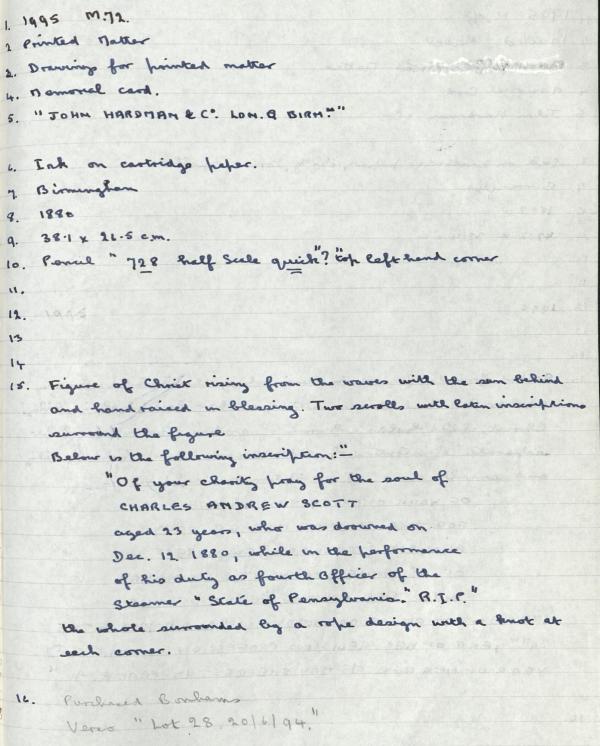 1. 1995 M.72.
2 Printed Matter
3. Drawing for printed matter
4. Memorial card.
5. "JOHN HARDMAN & Co. LON. & BIRM."
6. Ink on cartridge paper.
7. Birmingham
8. 1880
9. 38.1 x 26.5 c.m.
10. Pencil " 728 half Scale quick"? top left hand corner
11.
12.
13
14
15. Figure of Christ rising from the waves with the sun behind
and hand raised in blessing. Two scrolls with latin inscriptions
surround the figure
Below is the following inscription:-
"Of your charity pray for the soul of
CHARLES ANDREW SCOTT
aged 23 years, who was drowned on
Dec. 12 1880, while in the performance
of his duty as fourth Officer of the
Steamer "State of Pensylvania." R.I.P."
the whole surrounded by a rope design with a knot at
each corner.
16. Purchased Bonhams
Verso "Lot 28 20/6/94."